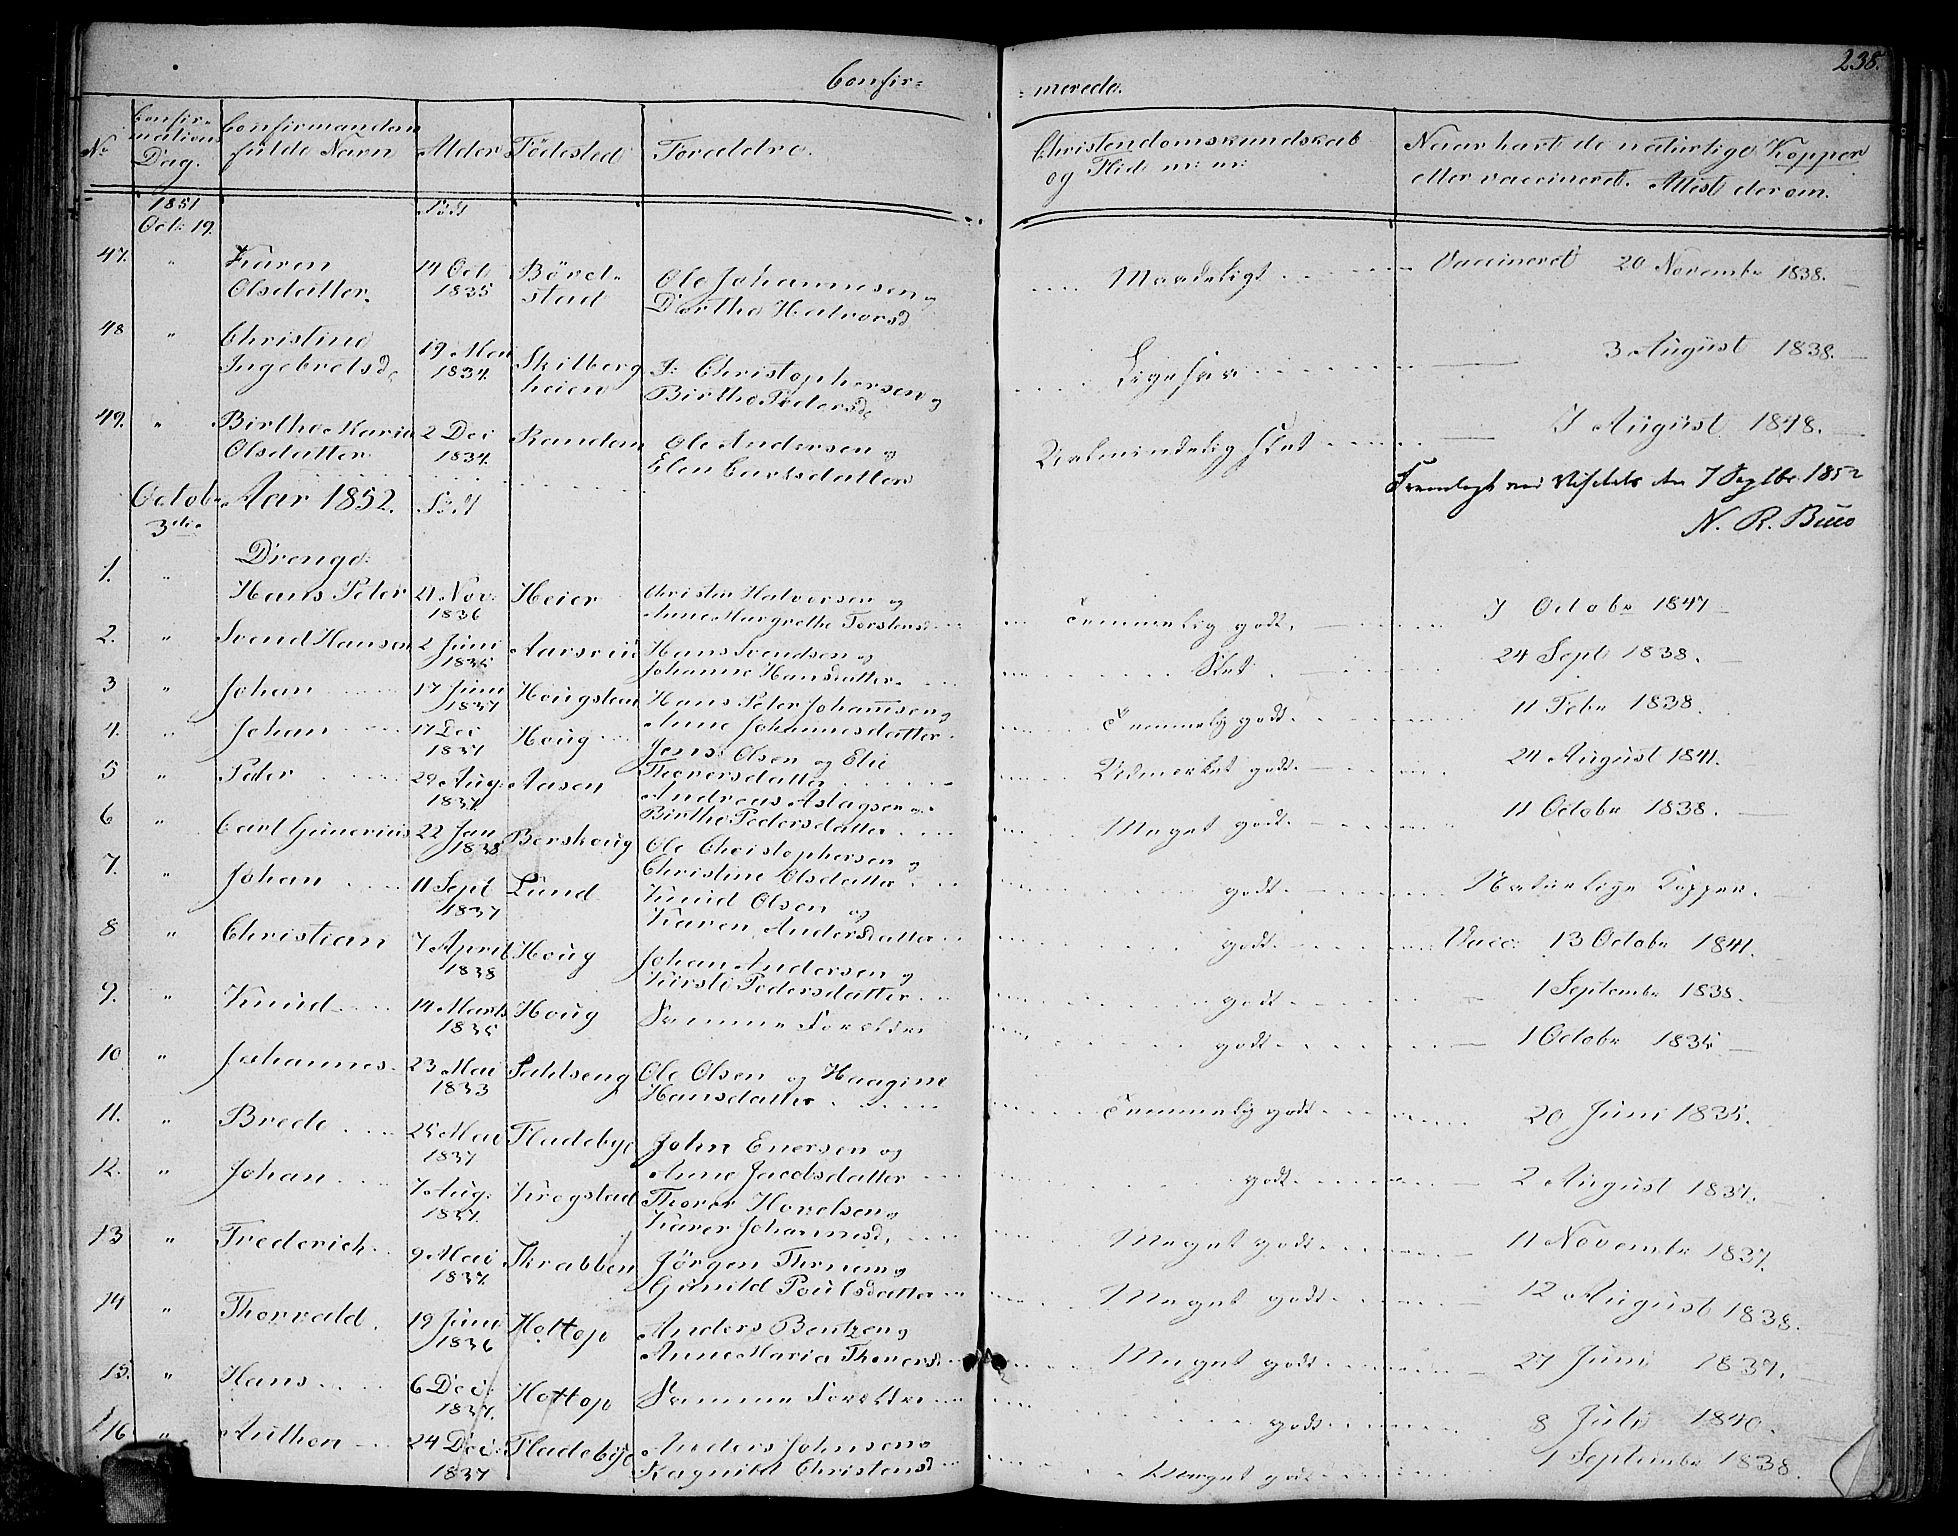 238.
Confir=
=merede.
No
Confir=
mations
Dag.
Confirmandens
fulde Navn
Alder
Födested
Foreldre.
Christendomskundskab
og Flid m: m:
Naar havt de naturlige Kopper
eller vaccineret. Attest derom.
1851
Oct: 19.
Födt
47. " Karen
Olsdatter.
14 Oct
1835
Börd=
stad
Ole Johannesen og
Dorthe Halvorsd
Maadeligt
Vaccineret 20 Novembr 1838.
48 " Christine
Ingebretsd
19 Mai
1834.
Skilberg
heien
I: Christophersen og
Birthe Pedersd
Ligesaa
3 August 1838.
49. " Birthe Maria
Olsdatter
2 Dec
1834.
Randem
Ole Andersen og
Elen Carlsdatter
Ualmindelig slet
7 August 1848.
Fremlagt ved Visitats den 7 Septbr. 1852
N. R.
Octobr
3die
Aar 1852.
Födt
Drenge:
1. " Hans Peter
21 Nov:
1836
Heier
Christen Halvorsen og
Anne Margrethe Torstensd
Temmelig godt.
7 Octobr 1847
2. " Svend Hansen
2 Juni
1835
Hans Svendsen og
Johanne Hansdatter
Slet
24 Sept 1838.
3 " Johan
17 Juni
1837
Hougsteen
Hans Peter Johannsen og
Anne Johannesdatter
Temmelig godt.
11 Febr 1838.
4. " Johan
17 Dec
1837
Houg
Jens Olsen og Elie
Thorersdatter
Udmerket godt.
24 August 1841.
5 " Peder
29 Aug:
1837
Aasen
Andreas Aslagsen og
Birthe Pedersdatter
Meget godt.
11 Octobr 1838.
6 " Carl Gunerius
22 Jan
1838
Berskoug
Ole Christophersen og
Christine Olsdatter
godt.
Naturlige Kopper.
7. " Johan
11 Sept
1837
Lund
Knud Olsen og
Karen Andersdatter
godt
Vacc: 13 Octobr 1841.
8 " Christian
7 April
1838
Houg
Johan Andersen og
Kirsti Pedersdatter
godt
1 Septembr 1838.
9. " Knud
14 Marts
1835
Houg
Samme Foreldre
godt
1 Octobr 1835
10 " Johannes
23 Mai
1833
Ole Olsen og Haagine
Hansdatter
Temmelig godt
20 Juni 1835.
11. " Brede
25 Mai
1837
Fladebye
John Enersen og
Anne Jacobsdatter
godt
2 August 1837.
12. " Johan
7 Aug:
1837.
Krogstad
Thorer Hovelsen og
Karen Johannisd.
Meget godt
11 Novembr 1837.
13 " Frederich
9 Mai
1837.
Skrabben
Jörgen Thrum og
Gunild Poulsdatter
Meget godt
12 August 1838.
14 " Thorvald.
19 Juni
1836
Hottop
Anders Bentzen og
Anne Maria Thorersd
Meget godt
27 Juni 1837.
15. " Hans
6 Dec:
1837.
Hottop
Samme Foreldre
godt
8 Juli 1840.
16. " Anthon
24 Dec:
1837
Fladebye
Anders Johnsen og
Ragnild Christensd
Meget godt
1 Septembr 1838.